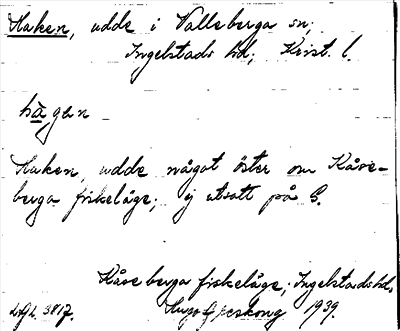 Haken, udde i Valleberga sn;
Ingelstads hd, Krist. l.
hägen
Haken, udde något öster om Kåse-
berga fiskeläge; ej utsatt på G.
Kåseberga fiskeläge, Ingelstads hd,
1939.